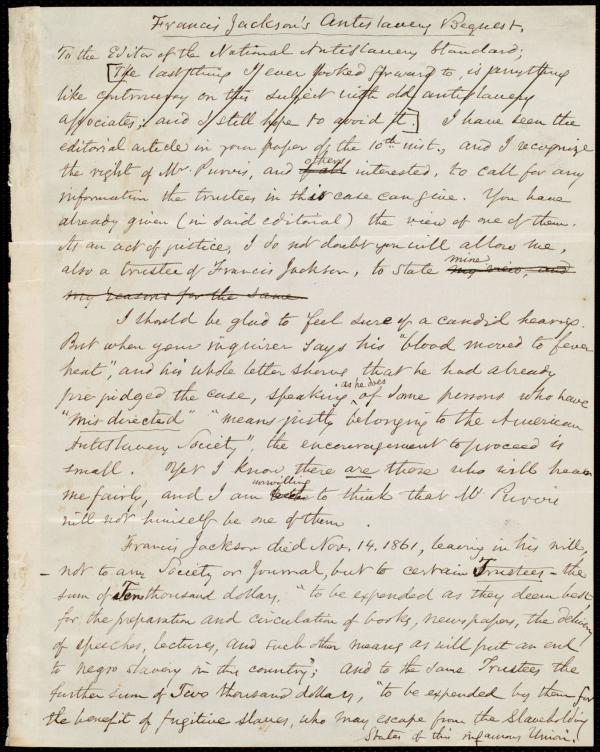 Francis Jackson's Antislavery Bequest.
To the Editor of the National Antislavery Standard;
[The last thing I ever looked forward to, is anything
like controversy on this subject with old antislavery
associates; and I still hope to avoid it.] I have seen the
editorial article in your paper of the 10th inst., and I recognize
the right of Mr. Purvis, and others interested, to call for any
information the trustees in this case can give. You have
already given (in said editorial) the view of one of them.
As an act of justice, I do not doubt you will allow me,
also a trustee of Francis Jackson, to state mine my view, and
my reasons for the same
I should be glad to feel sure of a candid hearing.
But when your inquirer says his "blood moved to fever
heat", and his whole letter shows that he had already
pre-judged the case, speaking as he does of some persons who have
"mis-directed" "means justly belonging to the American
Antislavery Society", the encouragement to proceed is
small. Yet I know there are those who will hear
me fairly, and I am unwilling to think that Mr. Purvis
will not himself be one of them.
Francis Jackson died Nov. 14. 1861, leaving in his will,
- not to any Society or Journal, but to certain Trustees - the
sum of Ten thousand dollars, "to be expended as they deem best,
for the preparation and circulation of books, newspapers, the delivery
of speeches, lectures, and such other means as will put an end
to negro slavery in this country"; and to the same Trustees the
further sum of Two thousand dollars, "to be expended by them for
the benefit of fugitive slaves, who may escape from the Slaveholding
States of this infamous Union."